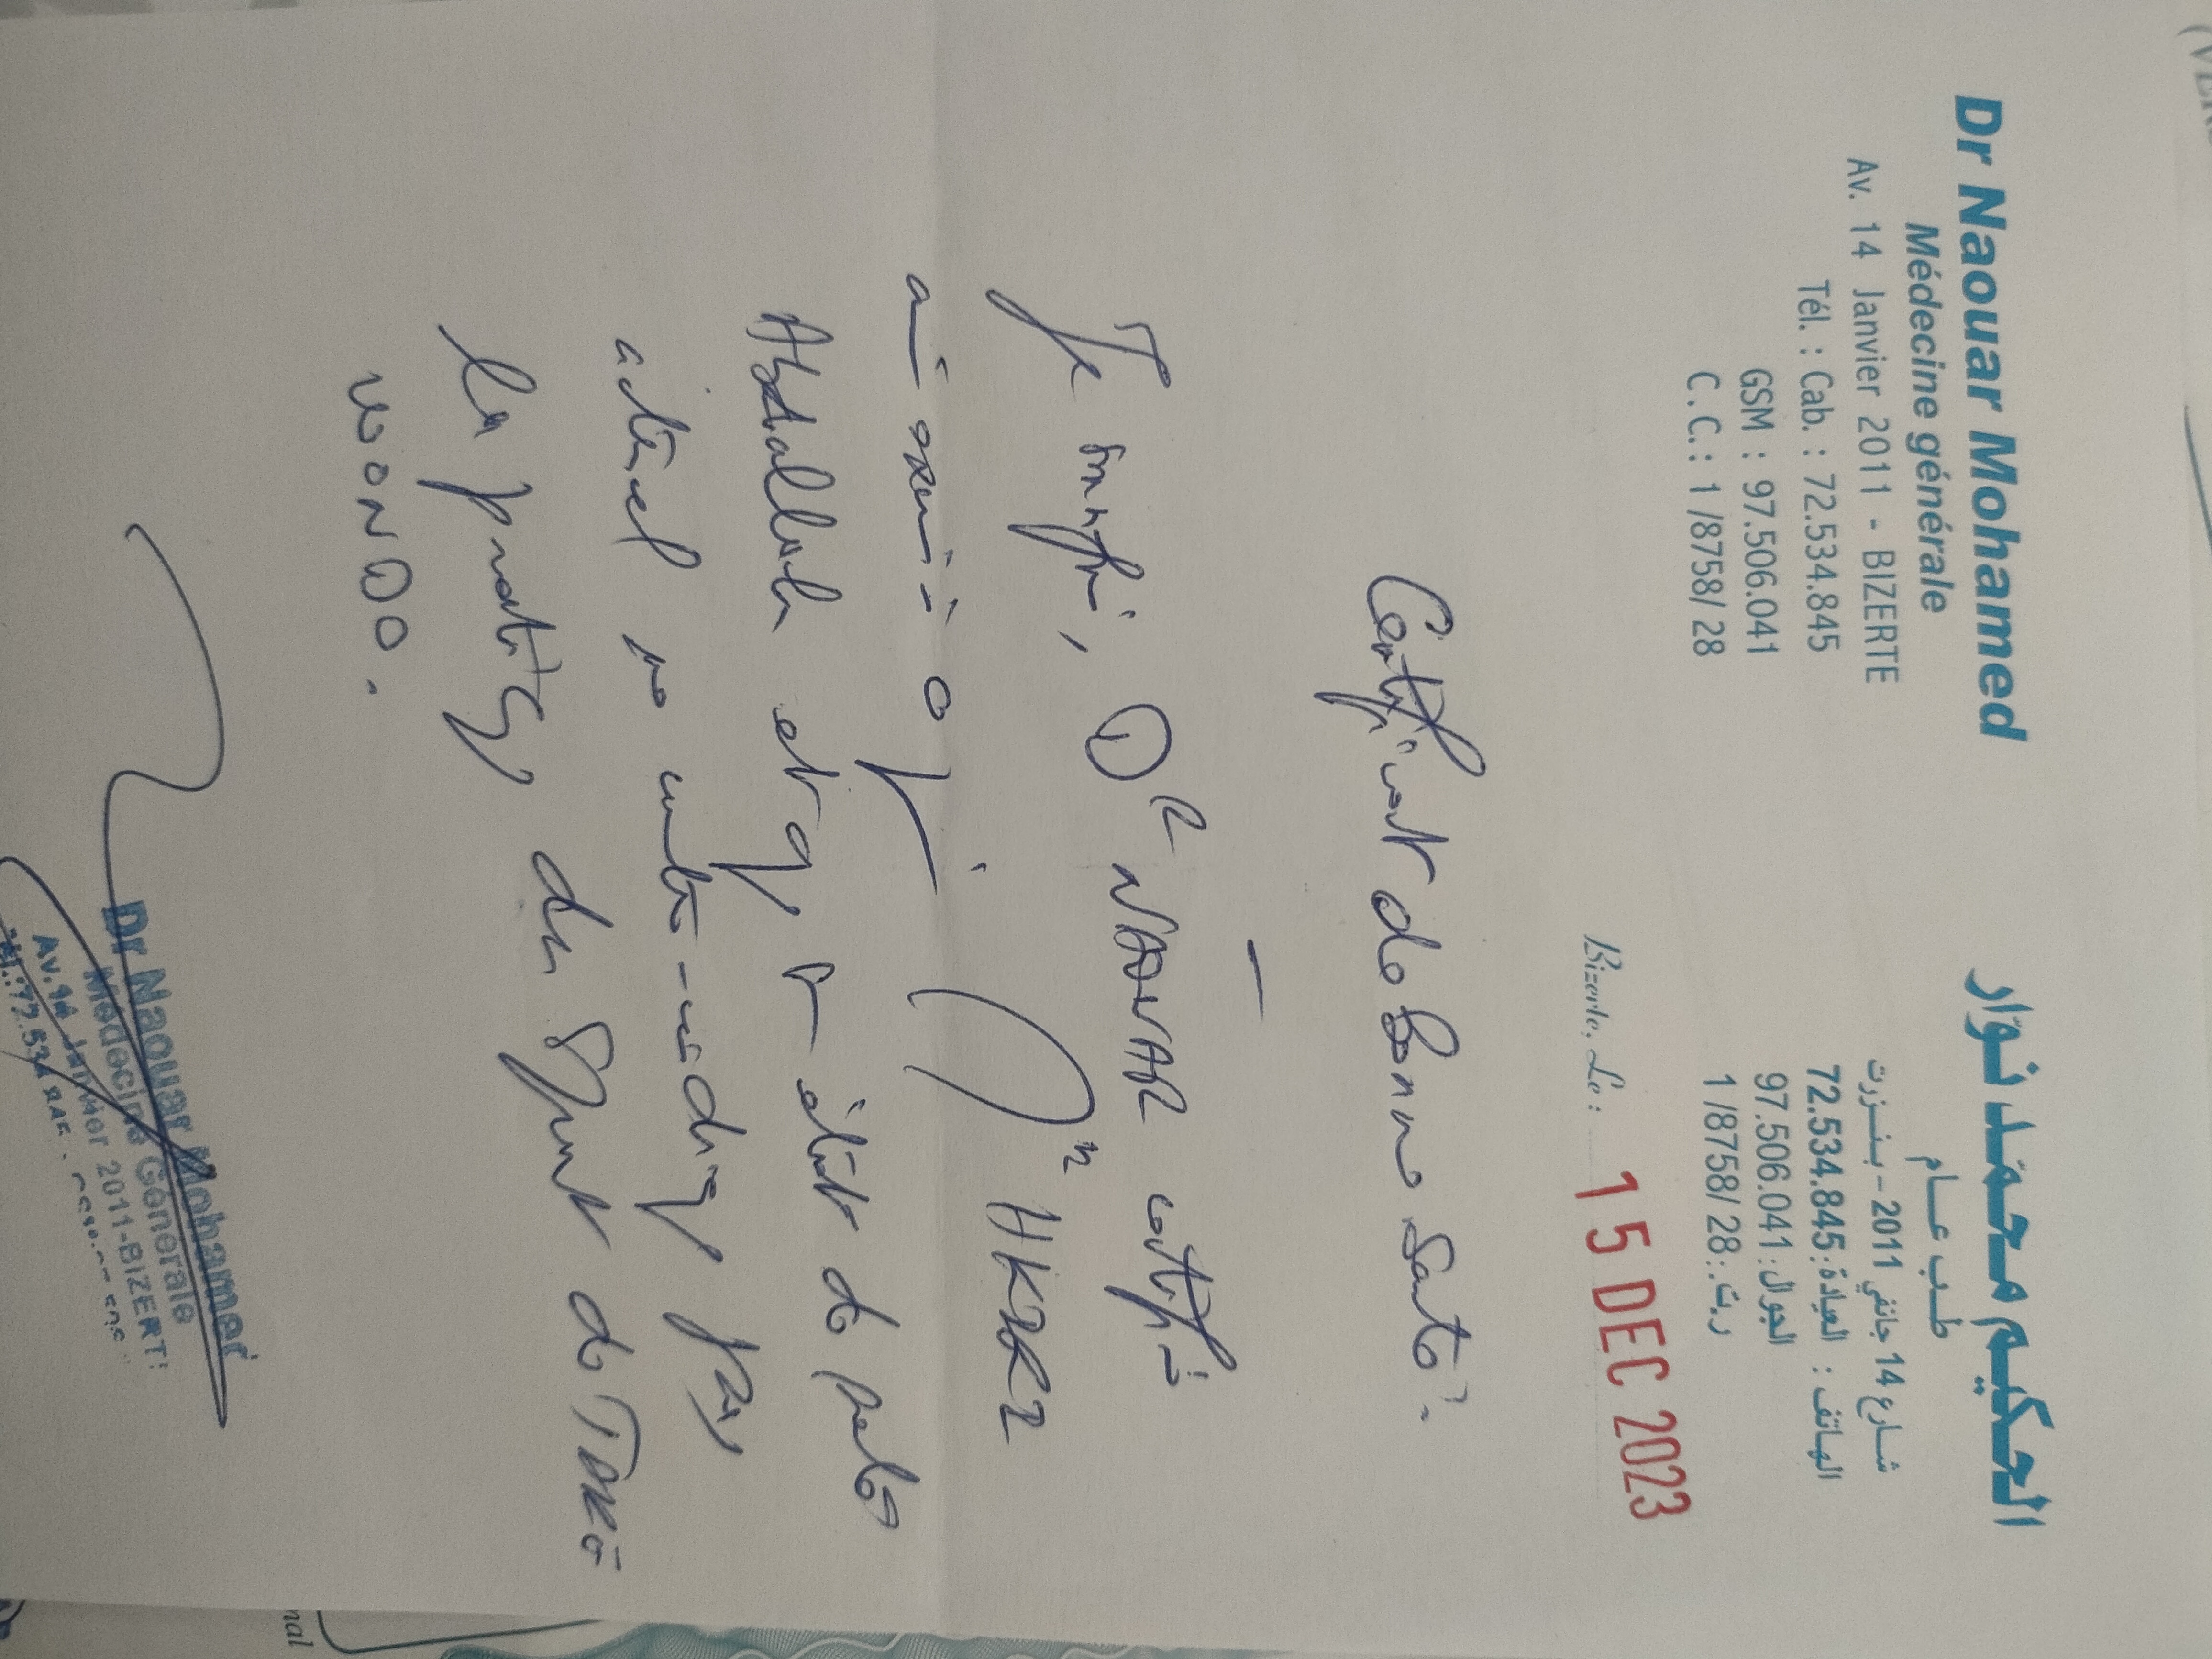 Dr Naouar Mohamed
Médecine générale
Av. 14 Janvier 2011 - BIZERTE
Tél. : Cab. : 72.534.845
GSM : 97.506.041
C.C.: 1 /8758/ 28
الحكيم محمد نوّار
طب عام
شارع 14 جانفي 2011 - بنزرت
الهاتف : العيادة: 72.534.845
الجوال: 97.506.041
ر.ت.: 1 /8758/ 28
Bizerte, Le : 15 DEC 2023
Certificat de Bonne Santé.
Je soussigné, DR NAOUAR certifie
avoir examiné ce jour Mr
Abdallah et qu'il état de santé
actuel ne contre-indique pas
la pratique du Sport de TAEK
WONDO.
Dr Naouar Mohamed
Médecine Générale
Av. 14 Janvier 2011-BIZERT